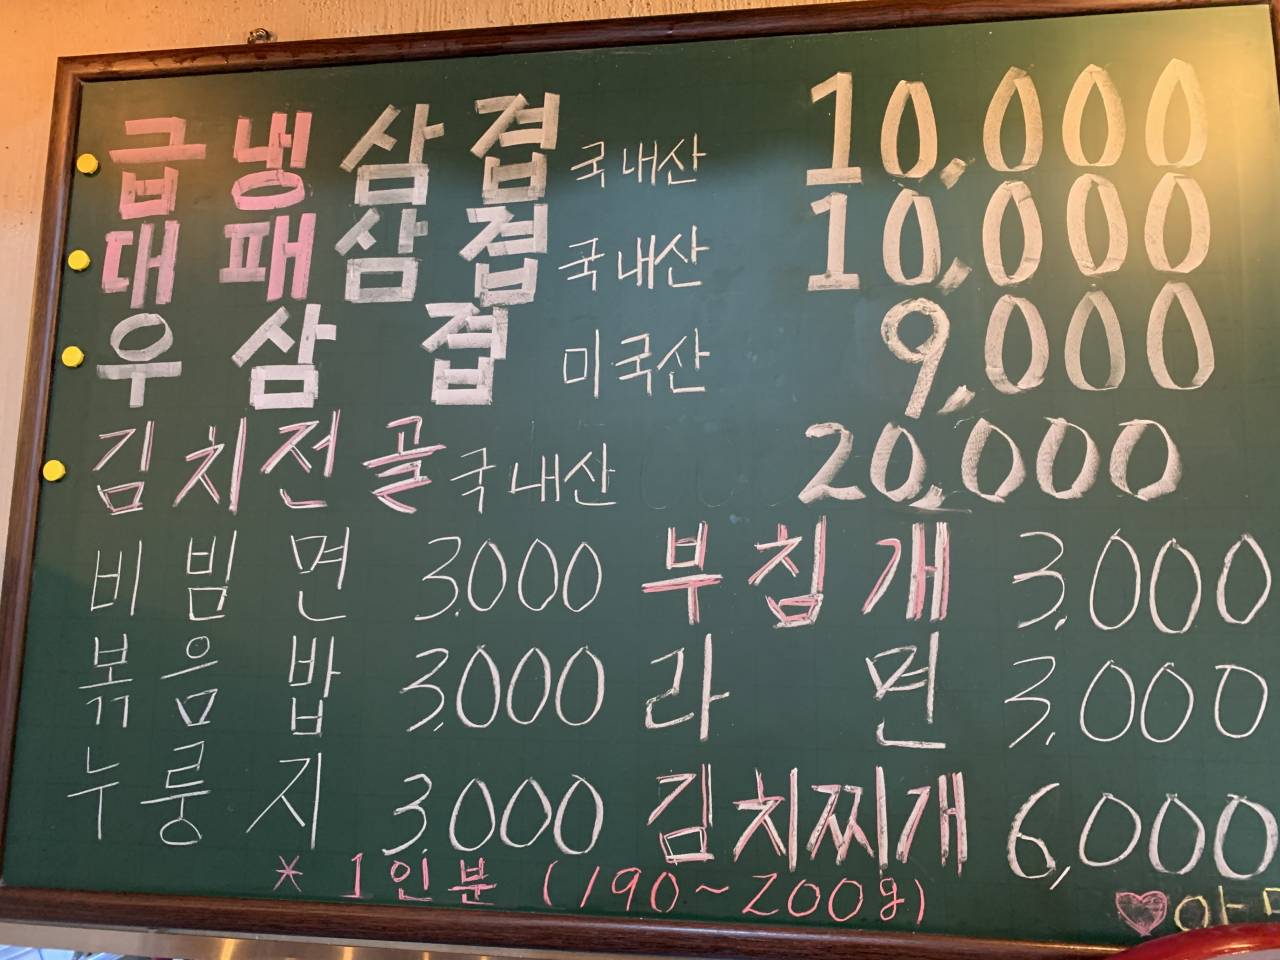 급냉삼겹 국내산 10,000
대패삼겹 국내산 10,000
우삼겹 미국산 9,000
김치전골 국내산 20,000
비빔면 3,000 부침개 3,000
볶음밥 3,000 라면 3,000
누룽지 3,000 김치찌개 6,000
* 1인분 (190~200g)